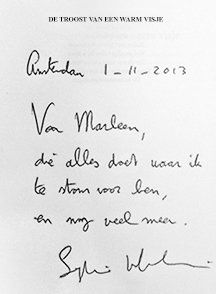 DE TROOST VAN EEN WARM VISJE
Amsterdam 1-11-2013
Voor Marleen,
die alles doet waar ik
te stom voor ben,
en nog veel meer.